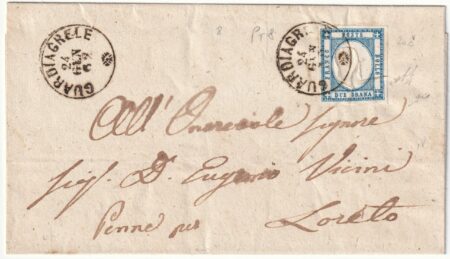 GUARDIAGRELE
24
GEN
62
GUARDIAGRELE
24
GEN
62
POSTA
DUE GRANA
All' Onorevole Signore
Sig. D. Eugenio Vicini
Penne per
Loreto